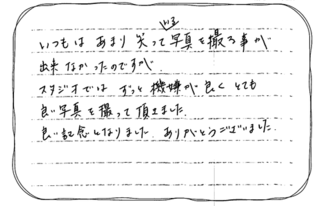 いつもは あまり 笑って写真を撮る事が
出来なかったのですが、
スタジオでは ずっと機嫌が良く とても
良い写真を撮って頂きました。
良い記念となりました。ありがとうございました。